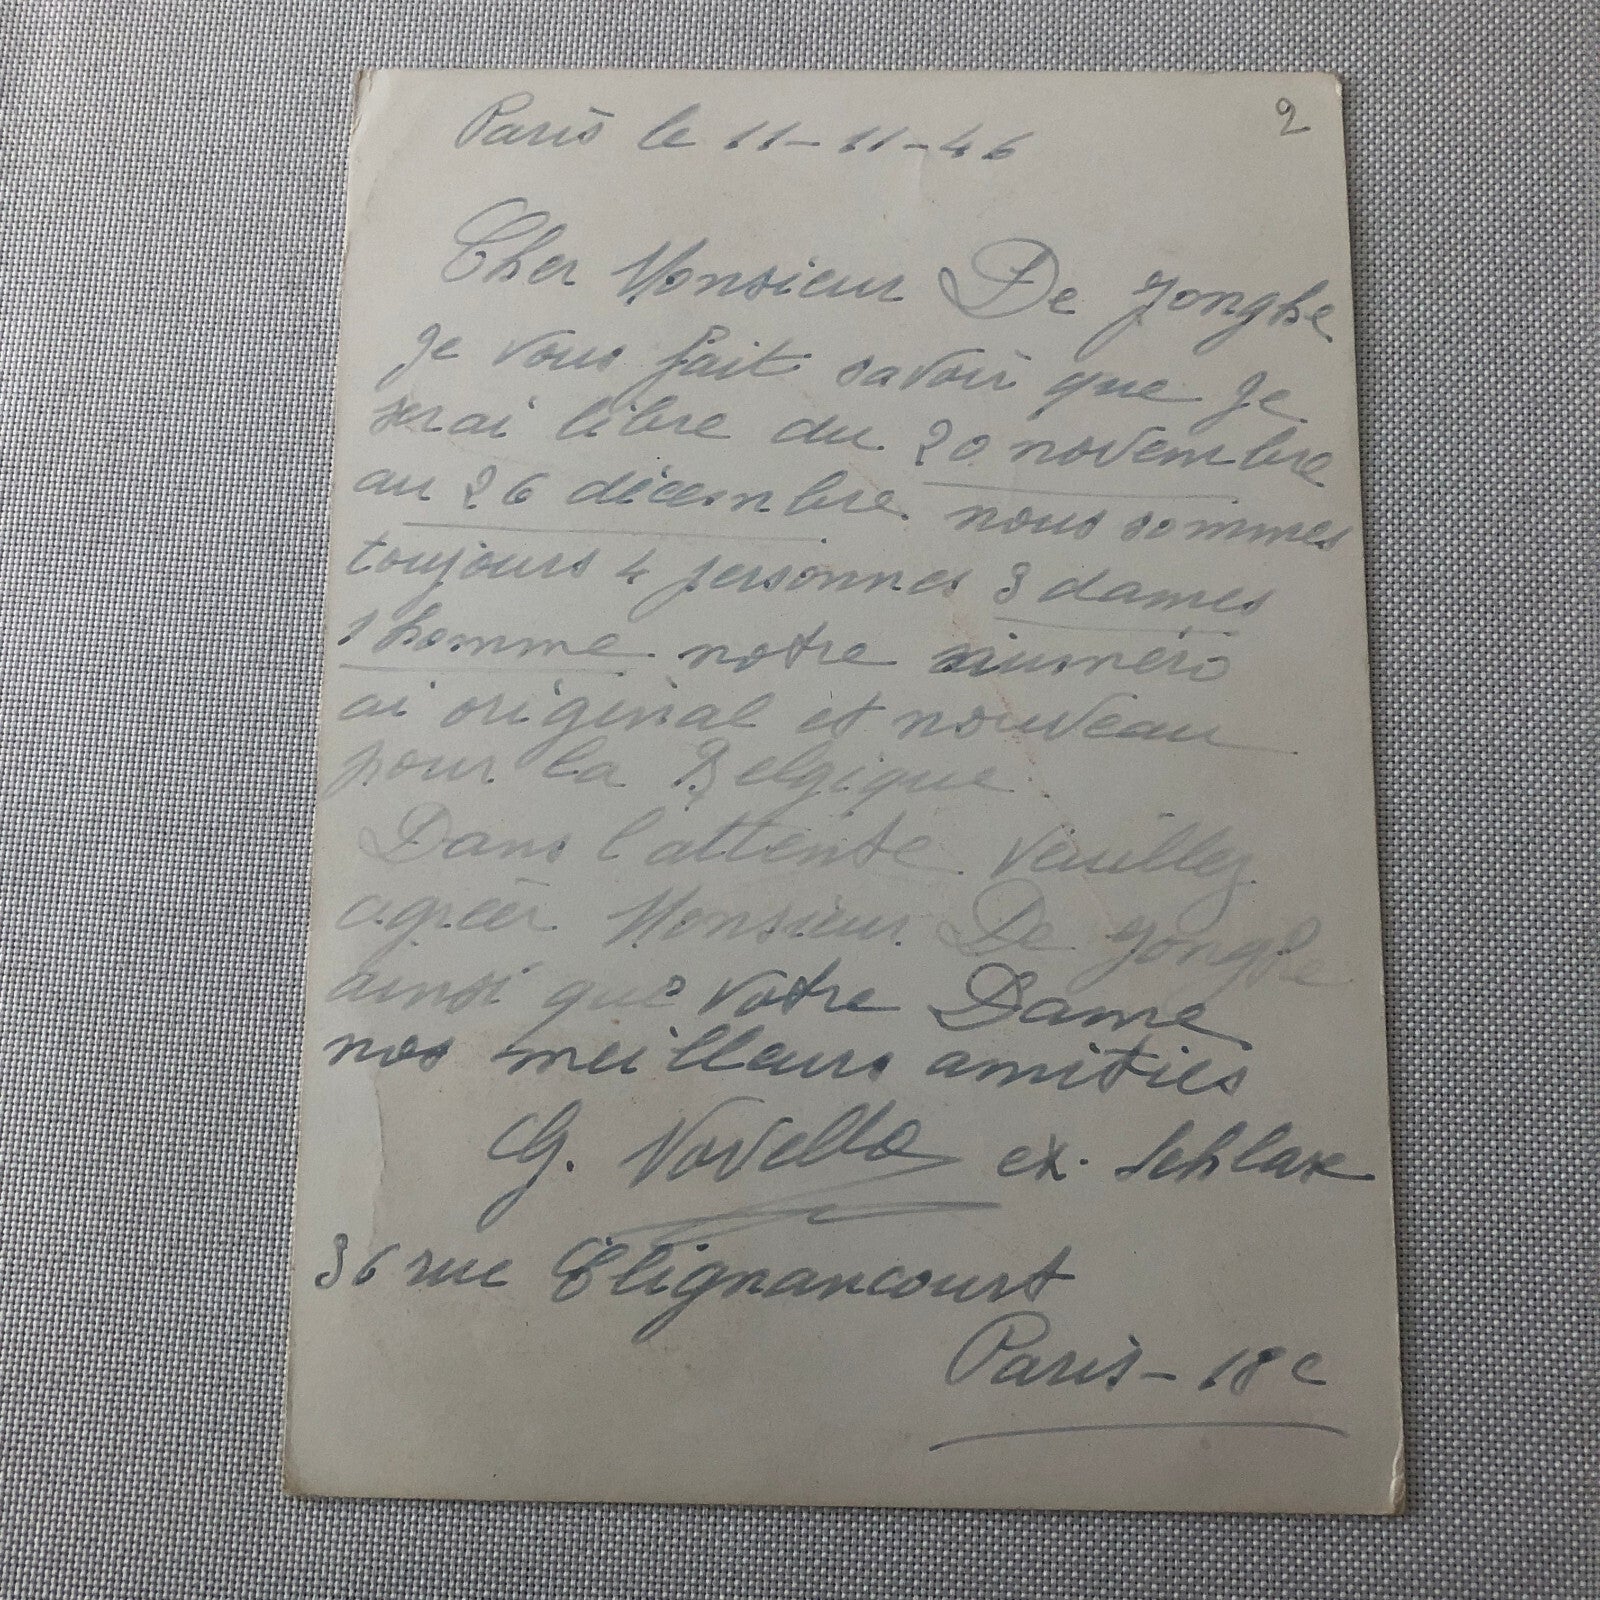 2
Paris le 11-11-46
Cher Monsieur De Jonghe
Je vous fait savoir que Je
serai libre du 20 novembre
au 26 décembre. nous sommes
toujours 4 personnes 3 dames
1 homme notre numéro
ai original et nouveau
pour la Belgique.
Dans l'attente veuillez
agréer Monsieur De Jonghe
ainsi que votre Dame
nos meilleurs amitiés
G. Novello ex. Schlax
36 rue Clignancourt
Paris - 18e